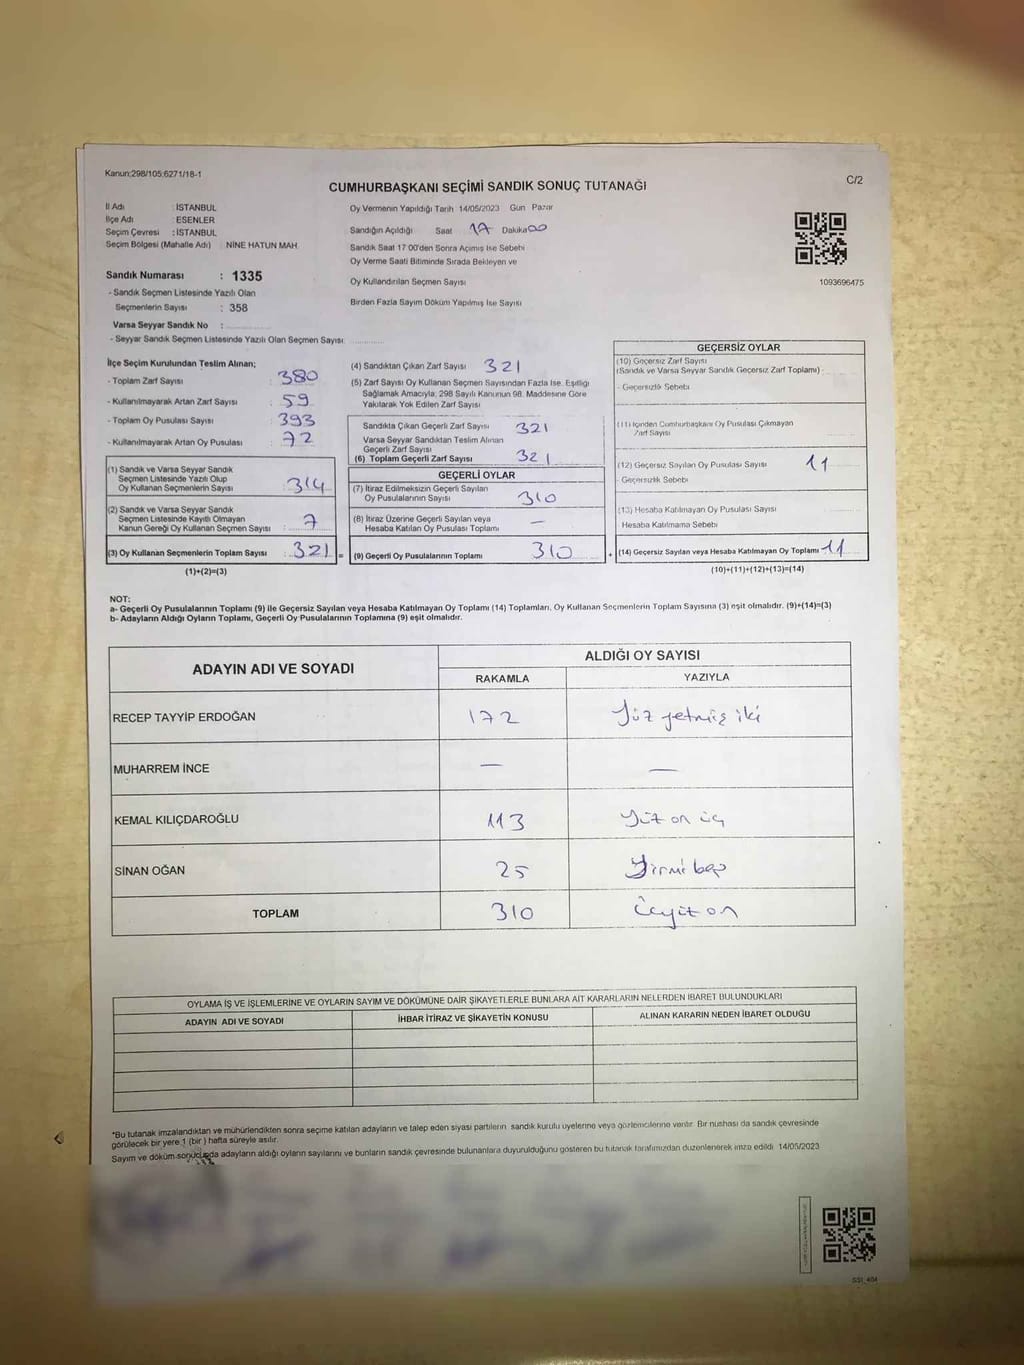 Kanun:298/105;6271/18-1
CUMHURBAŞKANI SEÇİMİ SANDIK SONUÇ TUTANAĞI
C/2
İl Adı : İSTANBUL
İlçe Adı : ESENLER
Seçim Çevresi : İSTANBUL
Seçim Bölgesi (Mahalle Adı) : NİNE HATUN MAH.
Sandık Numarası : 1335
- Sandık Seçmen Listesinde Yazılı Olan
Seçmenlerin Sayısı : 358
Varsa Seyyar Sandık No :
- Seyyar Sandık Seçmen Listesinde Yazılı Olan Seçmen Sayısı:
Oy Vermenin Yapıldığı Tarih 14/05/2023 Gün Pazar
Sandığın Açıldığı Saat 17 Dakika 00
Sandık Saat 17:00'den Sonra Açılmış İse Sebebi
Oy Verme Saati Bitiminde Sırada Bekleyen ve
Oy Kullandırılan Seçmen Sayısı
Birden Fazla Sayım Döküm Yapılmış İse Sayısı
1093696475
İlçe Seçim Kurulundan Teslim Alınan;
- Toplam Zarf Sayısı : 380
- Kullanılmayarak Artan Zarf Sayısı : 59
- Toplam Oy Pusulası Sayısı : 393
- Kullanılmayarak Artan Oy Pusulası : 72
(1) Sandık ve Varsa Seyyar Sandık
Seçmen Listesinde Yazılı Olup
Oy Kullanan Seçmenlerin Sayısı : 314
(2) Sandık ve Varsa Seyyar Sandık
Seçmen Listesinde Kayıtlı Olmayan
Kanun Gereği Oy Kullanan Seçmen Sayısı : 7
(3) Oy Kullanan Seçmenlerin Toplam Sayısı : 321 =
(1)+(2)=(3)
(4) Sandıktan Çıkan Zarf Sayısı 321
(5) Zarf Sayısı Oy Kullanan Seçmen Sayısından Fazla İse, Eşitliği
Sağlamak Amacıyla, 298 Sayılı Kanunun 98. Maddesine Göre
Yakılarak Yok Edilen Zarf Sayısı
Sandıkta Çıkan Geçerli Zarf Sayısı 321
Varsa Seyyar Sandıktan Teslim Alınan
Geçerli Zarf Sayısı
(6) Toplam Geçerli Zarf Sayısı 321
GEÇERLİ OYLAR
(7) İtiraz Edilmeksizin Geçerli Sayılan
Oy Pusulalarının Sayısı 310
(8) İtiraz Üzerine Geçerli Sayılan veya
Hesaba Katılan Oy Pusulası Toplamı —
(9) Geçerli Oy Pusulalarının Toplamı 310 +
GEÇERSİZ OYLAR
(10) Geçersiz Zarf Sayısı
(Sandık ve Varsa Seyyar Sandık Geçersiz Zarf Toplamı)
- Geçersizlik Sebebi
(11) İçinden Cumhurbaşkanı Oy Pusulası Çıkmayan
Zarf Sayısı
(12) Geçersiz Sayılan Oy Pusulası Sayısı 11
- Geçersizlik Sebebi
(13) Hesaba Katılmayan Oy Pusulası Sayısı
Hesaba Katılmama Sebebi
(14) Geçersiz Sayılan veya Hesaba Katılmayan Oy Toplamı 11
(10)+(11)+(12)+(13)=(14)
NOT:
a- Geçerli Oy Pusulalarının Toplamı (9) ile Geçersiz Sayılan veya Hesaba Katılmayan Oy Toplamı (14) Toplamları, Oy Kullanan Seçmenlerin Toplam Sayısına (3) eşit olmalıdır. (9)+(14)=(3)
b- Adayların Aldığı Oyların Toplamı, Geçerli Oy Pusulalarının Toplamına (9) eşit olmalıdır.
ADAYIN ADI VE SOYADI
ALDIĞI OY SAYISI
RAKAMLA YAZIYLA
RECEP TAYYİP ERDOĞAN 172 Yüz yetmiş iki
MUHARREM İNCE — —
KEMAL KILIÇDAROĞLU 113 Yüz on üç
SİNAN OĞAN 25 Yirmi beş
TOPLAM 310 Üçyüz on
OYLAMA İŞ VE İŞLEMLERİNE VE OYLARIN SAYIM VE DÖKÜMÜNE DAİR ŞİKAYETLERLE BUNLARA AİT KARARLARIN NELERDEN İBARET BULUNDUKLARI
ADAYIN ADI VE SOYADI İHBAR İTİRAZ VE ŞİKAYETİN KONUSU ALINAN KARARIN NEDEN İBARET OLDUĞU
*Bu tutanak imzalandıktan ve mühürlendikten sonra seçime katılan adayların ve talep eden siyasi partilerin sandık kurulu üyelerine veya gözlemcilerine verilir. Bir nüshası da sandık çevresinde
görülecek bir yere 1 (bir ) hafta süreyle asılır.
Sayım ve döküm sonucunda adayların aldığı oyların sayılarını ve bunların sandık çevresinde bulunanlara duyurulduğunu gösteren bu tutanak tarafımızdan düzenlenerek imza edildi 14/05/2023